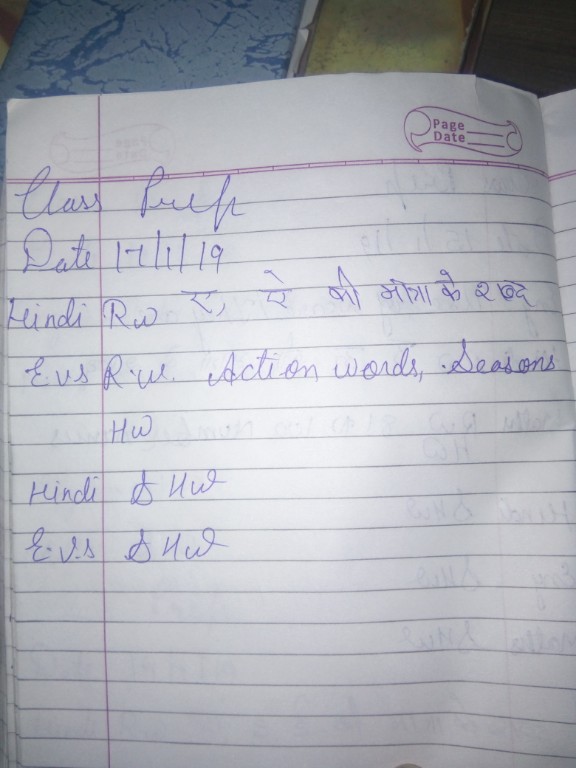 Page
Date
Class Prep
Date 17/1/19
Hindi R.w ए, ऐ की मात्रा के शब्द
E.v.s R.w. Action words, Seasons
HW
Hindi S HW
E.v.s S HW